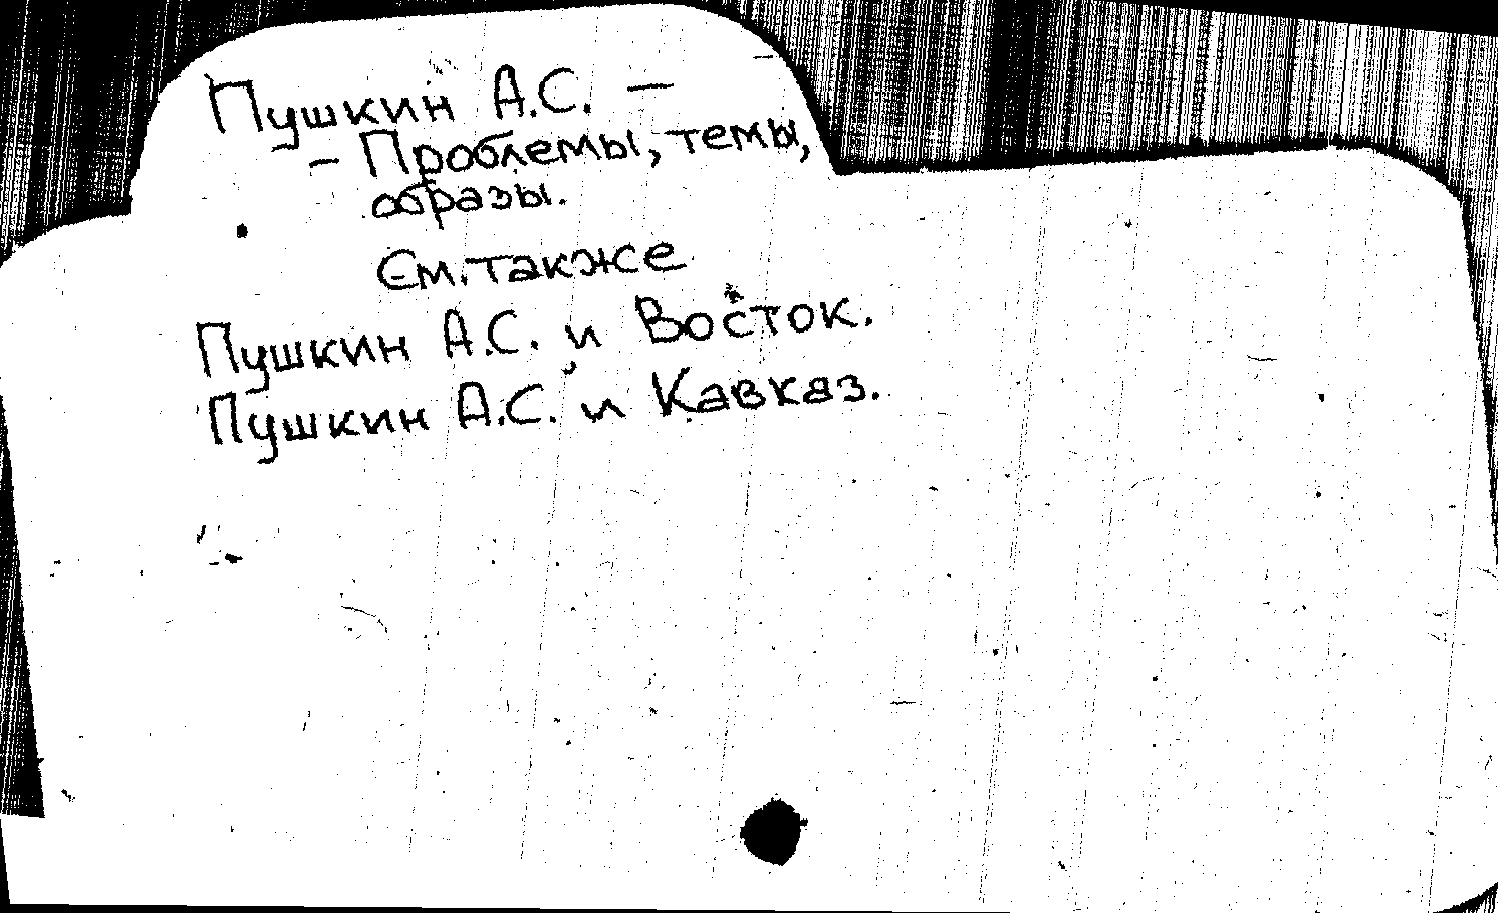 Пушкин А.С. —
– Проблемы, темы,
образы.
См. также
Пушкин А.С. и Восток.
Пушкин А.С. и Кавказ.